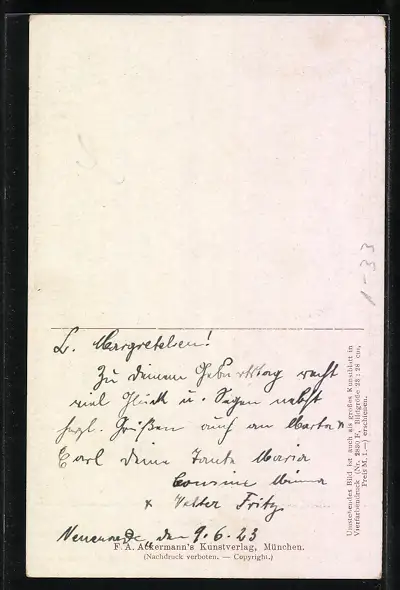 L. Margretchen!
Zu deinem Geburtstag recht
viel Glück u. Segen nebst
herzl. Grüßen auch an Marta &
Carl deine Tante Maria
Cousine Minna
& Vetter Fritz
den 9.6.23
F. A. Ackermann's Kunstverlag, München.
(Nachdruck verboten. — Copyright.)
Umstehendes Bild ist auch als großes Kunstblatt in
Vierfarbendruck (Nr. 2830 F, Bildgröße 28:28 cm,
Preis M. 1.—) erschienen.
1-33